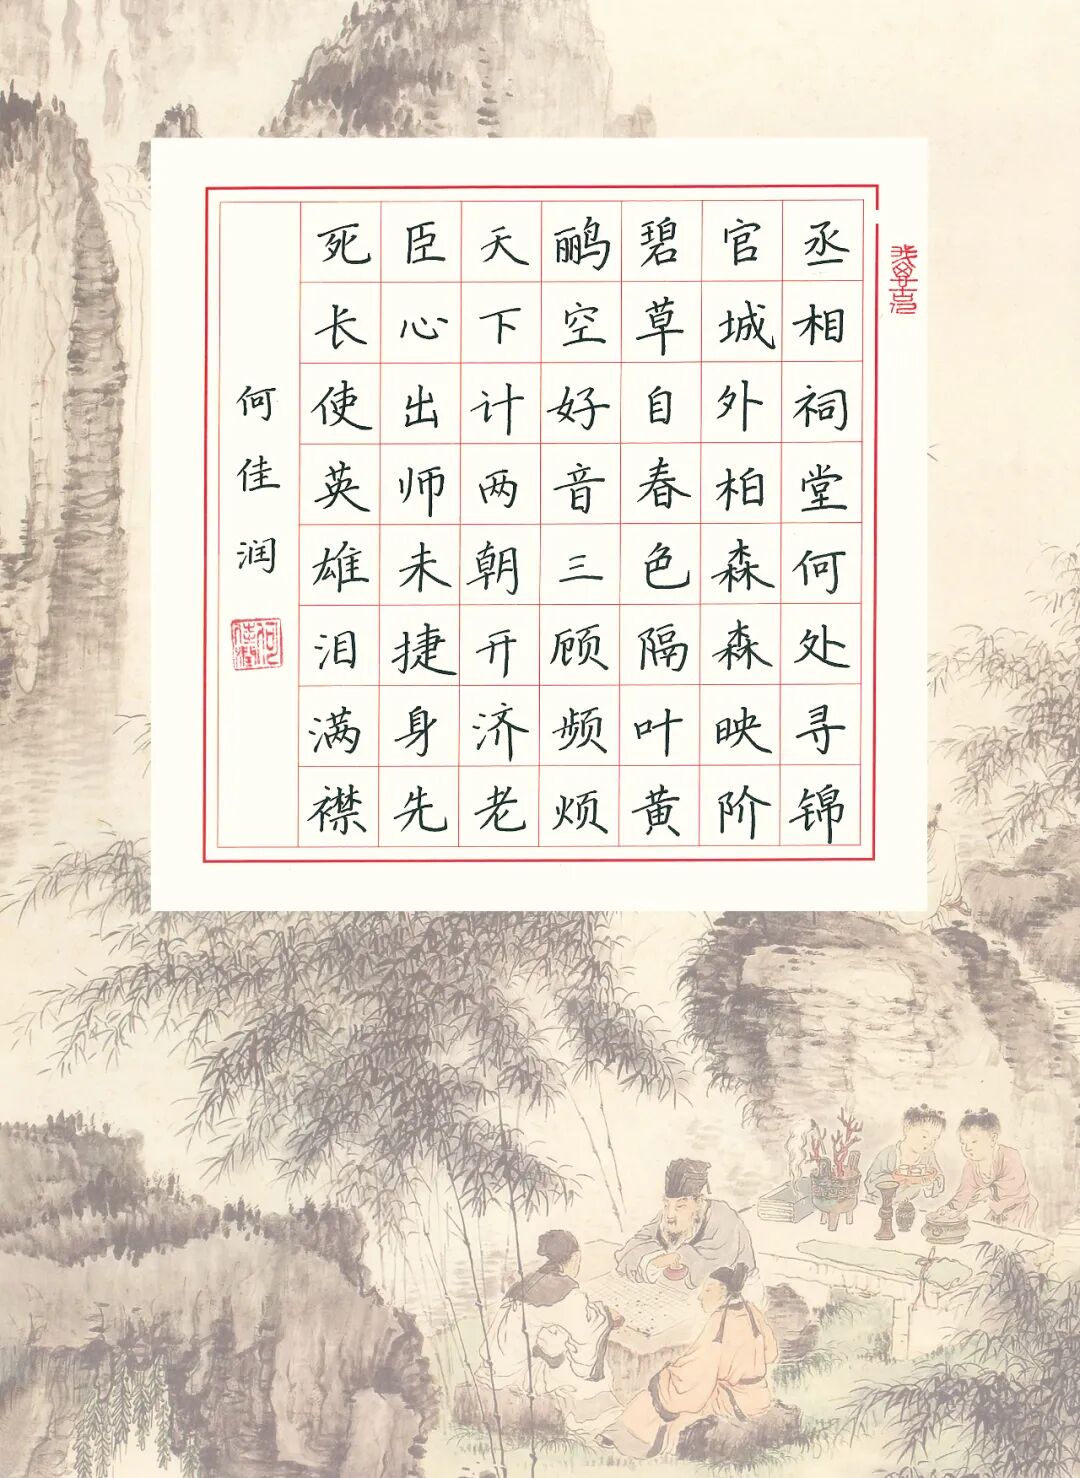 丞相祠堂何处寻锦
官城外柏森森映阶
碧草自春色隔叶黄
鹂空好音三顾频烦
天下计两朝开济老
臣心出师未捷身先
死长使英雄泪满襟
何佳润